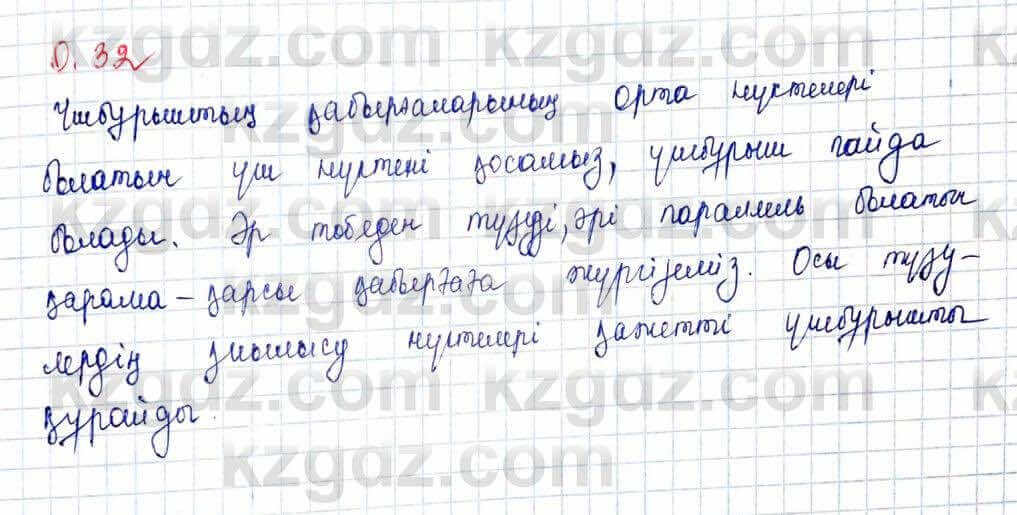 0.32
Үшбұрыштың қабырғаларының орта нүктелері
болатын үш нүктені қосамыз, үшбұрыш пайда
болады. Әр төбеден түзуді, әрі параллель болатын
қарама-қарсы қабырғаға жүргіземіз. Осы түзу-
лердің қиылысу нүктелері қажетті үшбұрышты
құрайды.
kzgdz.com
kzgdz.com
kzgdz.com
kzgdz.com
kzgdz.com
kzgdz.com